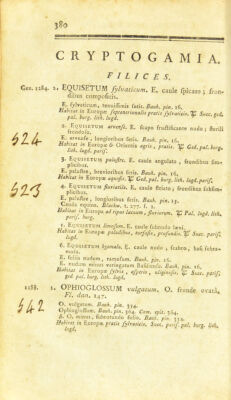 380
CRYPTOGAMIA.
FILICES.
Gen. 1284. 2. EQUISETUM sylvaticum. E. caule spicato; frondibus compositis.
E. sylvaticum, tenuissimis setis. Bauh. pin. 16.
Habitat in Europæ septentrionalis pratis sylvaticis. ♃ Suec. ged. pal. burg. lith. lugd.
524
2. EQUISETUM arvense. E. scapo fructificante nudo; sterili frondoso.
E. arvense, longioribus setis. Bauh. pin. 16.
Habitat in Europæ & Orientis agris, pratis. ♃ Ged. pal. burg. lith. lugd. paris.
3. EQUISETUM palustre. E. caule angulato; frondibus simplicibus.
E. palustre, brevioribus setis. Bauh. pin. 15.
Habitat in Europæ aquosis. ♃ Ged. pal. burg. lith. lugd. paris.
523
4. EQUISETUM fluviatile. E. caule striato; frondibus subsimplicibus.
E. palustre, longioribus setis. Bauh. pin. 15.
Habitat in Europa ad ripas lacuum, fluviorum. ♃ Pal. lugd. lith, paris.
EQUISETUM limosum. E. caule subnudo lævi.
Habitat in Europæ paludibus, profundis. ♃ Suec. paris.
EQUISETUM hyemale. E. caule nudo, scabro,
Bauh. pin. 16.
Habitat in Europæ sylvis, asperis, uliginosis. ♃ Suec. paris. ged. pal. burg. lith. lugd.
1288. 1. OPHIOGLOSSUM vulgatum. O. fronde ovata. Fl. dan. 147.
542
O. vulgatum. Bauh. pin. 354.
Ophioglossum. Bauh. pin. 364.
Habitat in Europæ pratis sylvaticis. Suec. paris. pal. burg. lith. lugd.